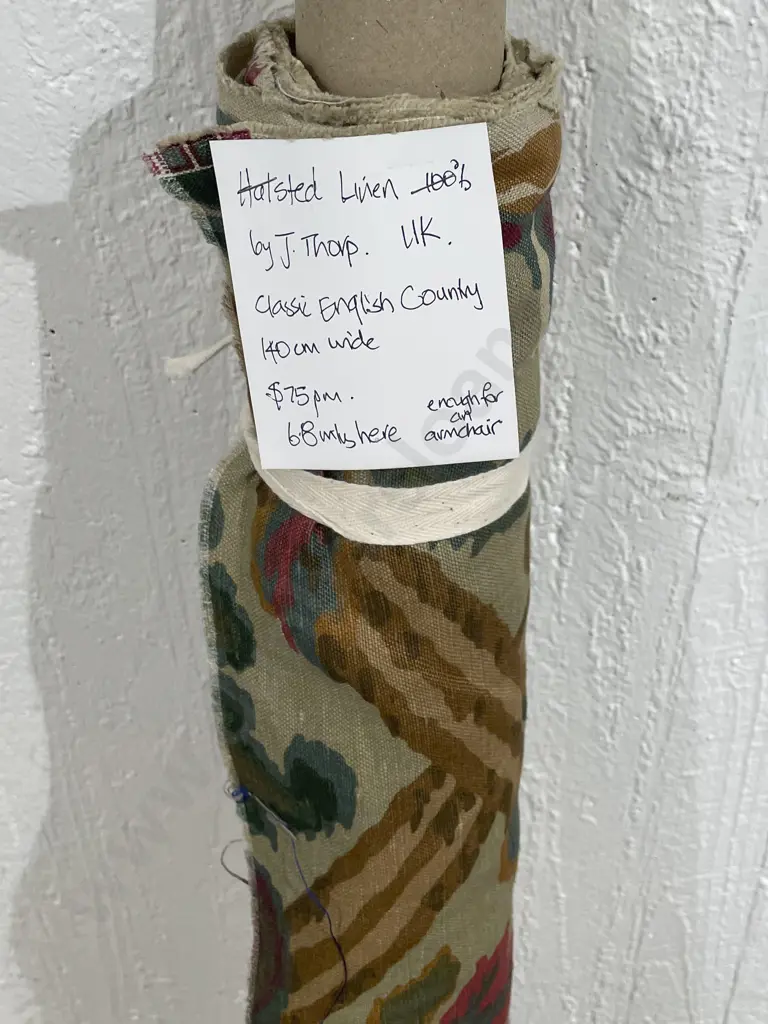 Halsted Linen 100%
by J. Thorp. UK.
Classic English Country
140cm wide
$75pm.
6.8 mtrs here
enough for
an
armchair